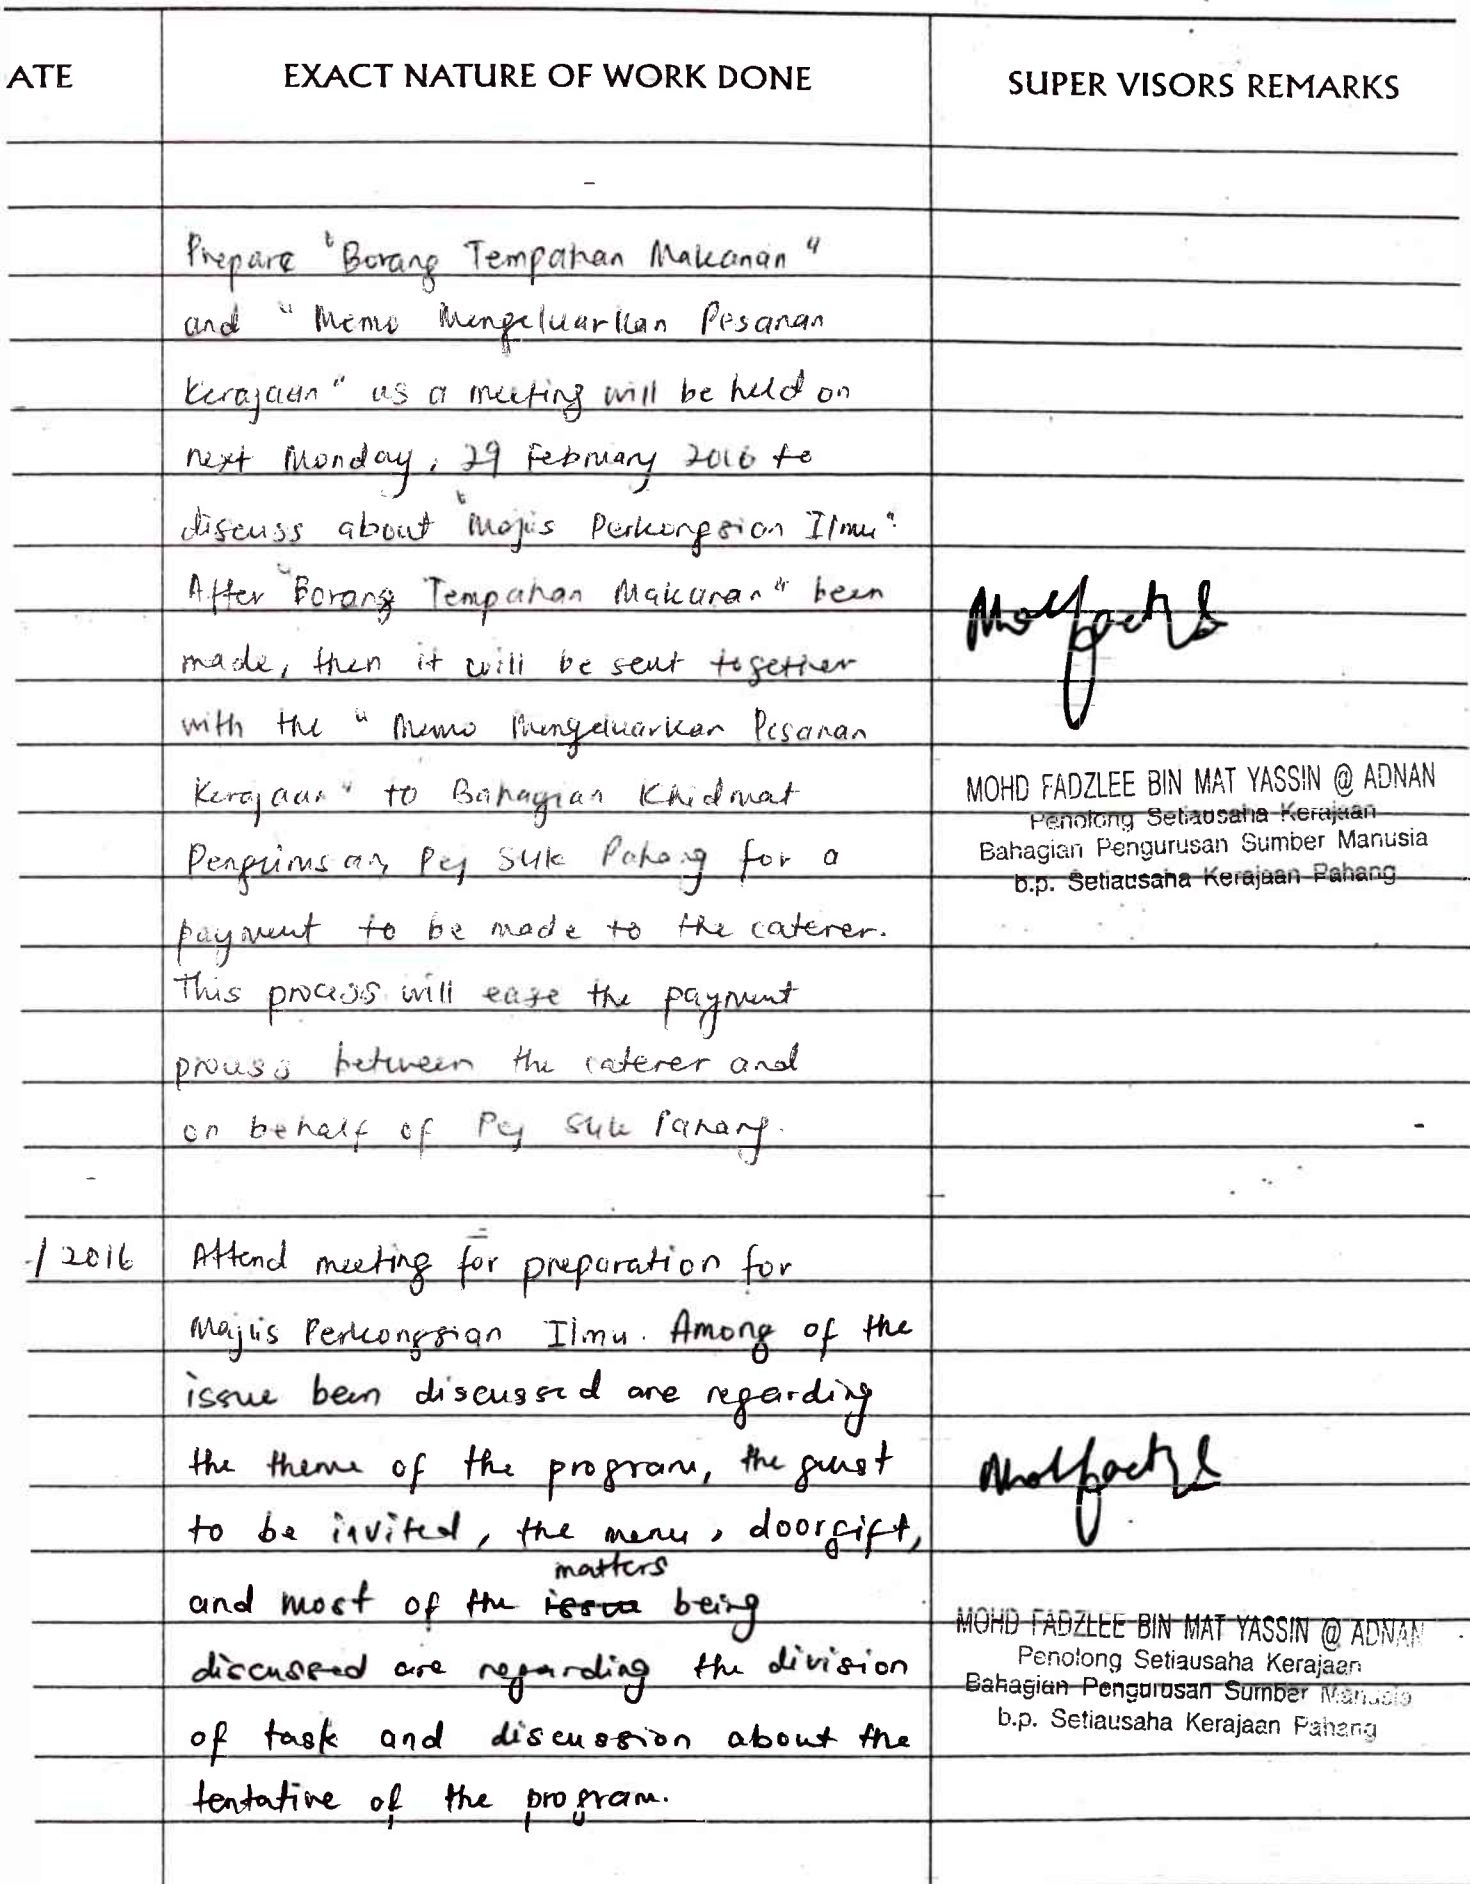 ATE
EXACT NATURE OF WORK DONE
SUPER VISORS REMARKS
Prepare "Borang Tempahan Makanan"
and "Memo Mengeluarkan Pesanan
Kerajaan" as a meeting will be held on
next Monday, 29 February 2016 to
discuss about "Majlis Perkongsian Ilmu".
After "Borang Tempahan Makanan" been
made, then it will be sent together
with the "Memo Mengeluarkan Pesanan
Kerajaan" to Bahagian Khidmat
Pengurusan, Pej SUK Pahang for a
payment to be made to the caterer.
This process will ease the payment
process between the caterer and
on behalf of Pej SUK Pahang.
MOHD FADZLEE BIN MAT YASSIN @ ADNAN
Penolong Setiausaha Kerajaan
Bahagian Pengurusan Sumber Manusia
b.p. Setiausaha Kerajaan Pahang
/2016
Attend meeting for preparation for
Majlis Perkongsian Ilmu. Among of the
issue been discussed are regarding
the theme of the program, the guest
to be invited, the menu, doorgift,
matters
and most of the issue being
discussed are regarding the division
of task and discussion about the
tentative of the program.
MOHD FADZLEE BIN MAT YASSIN @ ADNAN
Penolong Setiausaha Kerajaan
Bahagian Pengurusan Sumber Manusia
b.p. Setiausaha Kerajaan Pahang